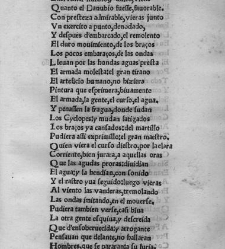 Quanto el Danubio fuesse, fauorable,
Con presteza admirable, vieras junto
Vn exercito a punto, denodado,
Y despues d'embarcado, el remolento
El duro mouimiento, de los braços
Los pocos embaraços, de las ondas
Lleuan por las hondas aguas presta
El armada molesta al gran tirano
El artificio humano, no hiziera
Pintura que esprimiera, biuamente
El armada, la gente, el curso, el agua,
Y penassen la fragua, donde sudan
Los Cyclopes y mudan fatigados
Los braços ya cansados del martillo
Pudiera assi exprimillo el gran maestro,
Quien viera el curso diestro, por la clara
Corriente, bien jurara, a aquellas oras
Que las agudas proras diuidian
El agua; y la hendian, con sonido
Y el rastro yua seguido: luego vieras
Al viento las vanderas, tremolando
Las ondas imitando, en el mouerse,
Pudiera tambien verse, casi biua
La otra gente esquiua, y descreida
Que d'ensoberuecida, y arrogante
Pensauan que delante, no hallaran
Hombres, que se pararan a su furia,